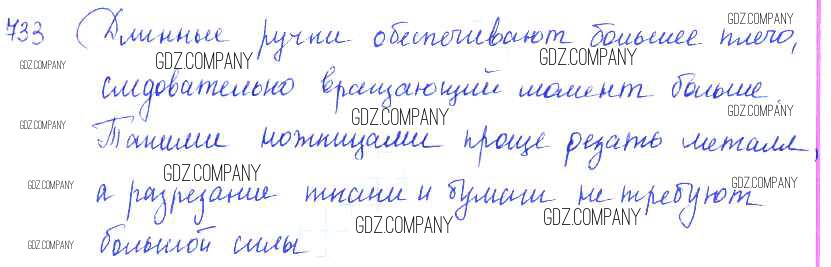 733 Длинные ручки обеспечивают большее плечо,
GDZ.COMPANY
GDZ.COMPANY GDZ.COMPANY GDZ.COMPANY
следовательно вращающий момент больше.
GDZ.COMPANY GDZ.COMPANY GDZ.COMPANY
Такими ножницами проще резать металл,
GDZ.COMPANY
GDZ.COMPANY GDZ.COMPANY
а разрезание ткани и бумаги не требуют
GDZ.COMPANY GDZ.COMPANY
GDZ.COMPANY большой силы